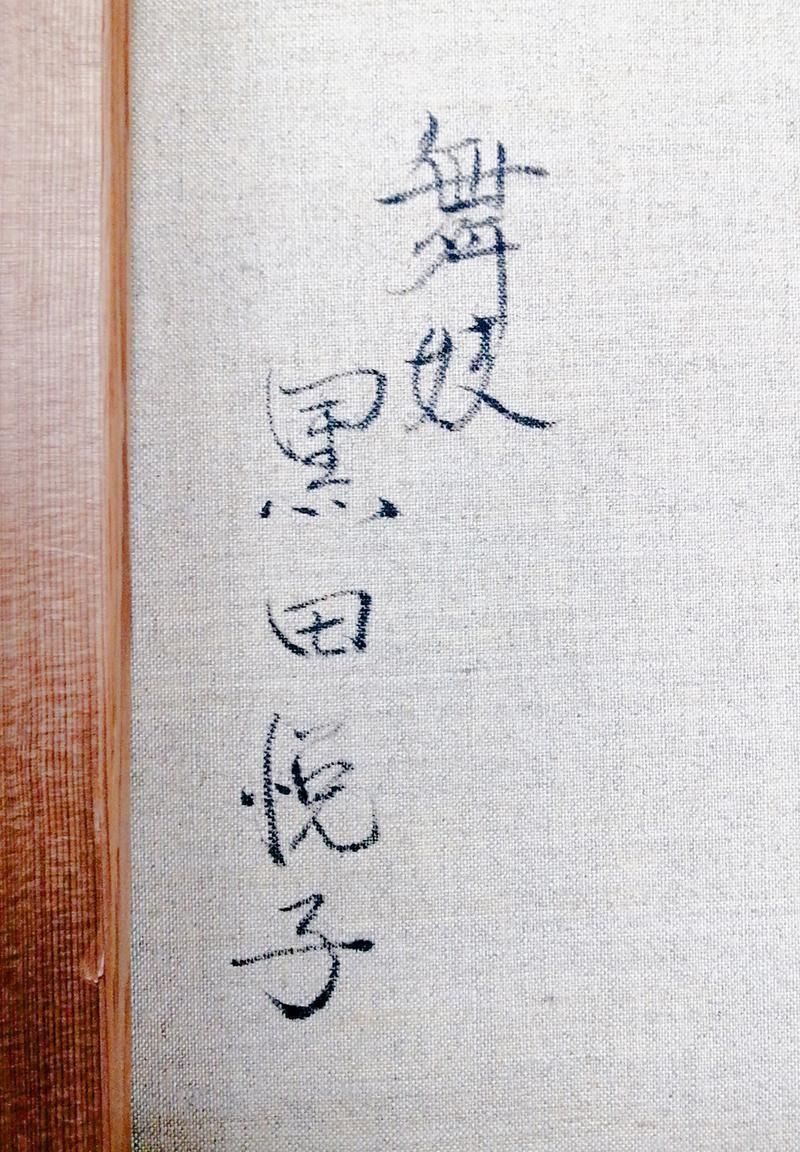 舞妓
黒田悦子